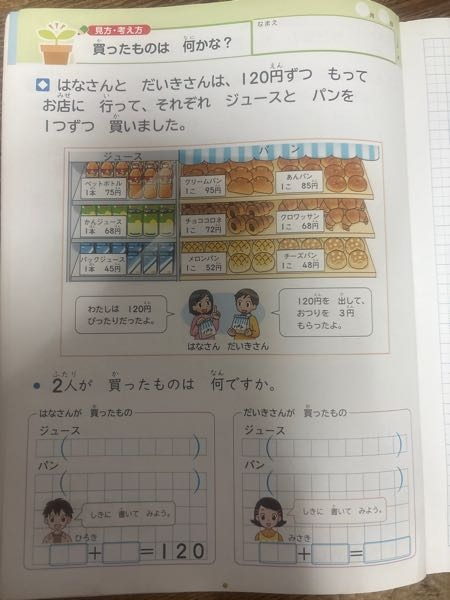 月
見方・考え方
なまえ
買ったものは 何かな?
はなさんと だいきさんは、120円ずつ もって
お店に 行って、それぞれ ジュースと パンを
1つずつ 買いました。
ジュース
パン
ペットボトル
1本 75円
かんジュース
1本 68円
パックジュース
1本 45円
クリームパン
1こ 95円
あんパン
1こ 85円
チョココロネ
1こ 72円
クロワッサン
1こ 68円
メロンパン
1こ 52円
チーズパン
1こ 48円
わたしは 120円
ぴったりだったよ。
はなさん
だいきさん
120円を 出して、
おつりを 3円
もらったよ。
2人が 買ったものは 何ですか。
はなさんが 買ったもの
ジュース
( )
パン
( )
しきに 書いて みよう。
ひろき
+ =120
だいきさんが 買ったもの
ジュース
( )
パン
( )
しきに 書いて みよう。
みさき
+ =